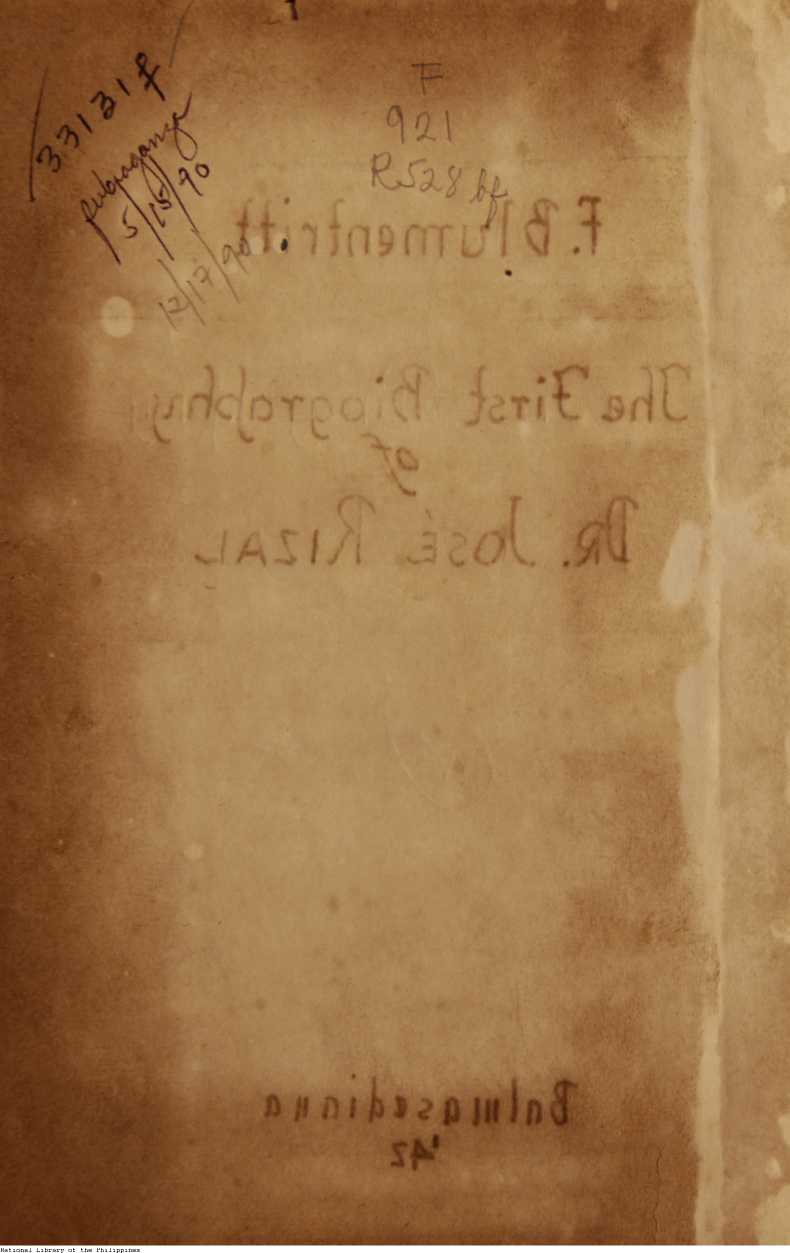 33131 f
5/15/90
12/17/90
F
921
R528 bf
F. Blumentritt
The First Biography
of
DR. JOSÉ RIZAL
Balmasediana
'42
National Library of the Philippines